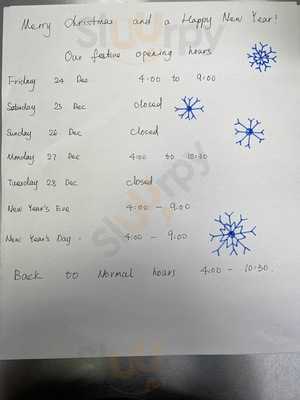 Merry Christmas and a Happy New Year!
Our festive opening hours
Friday 24 Dec 4:00 to 9:00
Saturday 25 Dec closed
Sunday 26 Dec closed
Monday 27 Dec 4:00 to 10:30
Tuesday 28 Dec closed
New Year's Eve 4:00 - 9:00
New Year's Day. 4:00 - 9:00
Back to Normal hours 4:00 - 10:30.
sluurpy
sluurpy
sluurpy